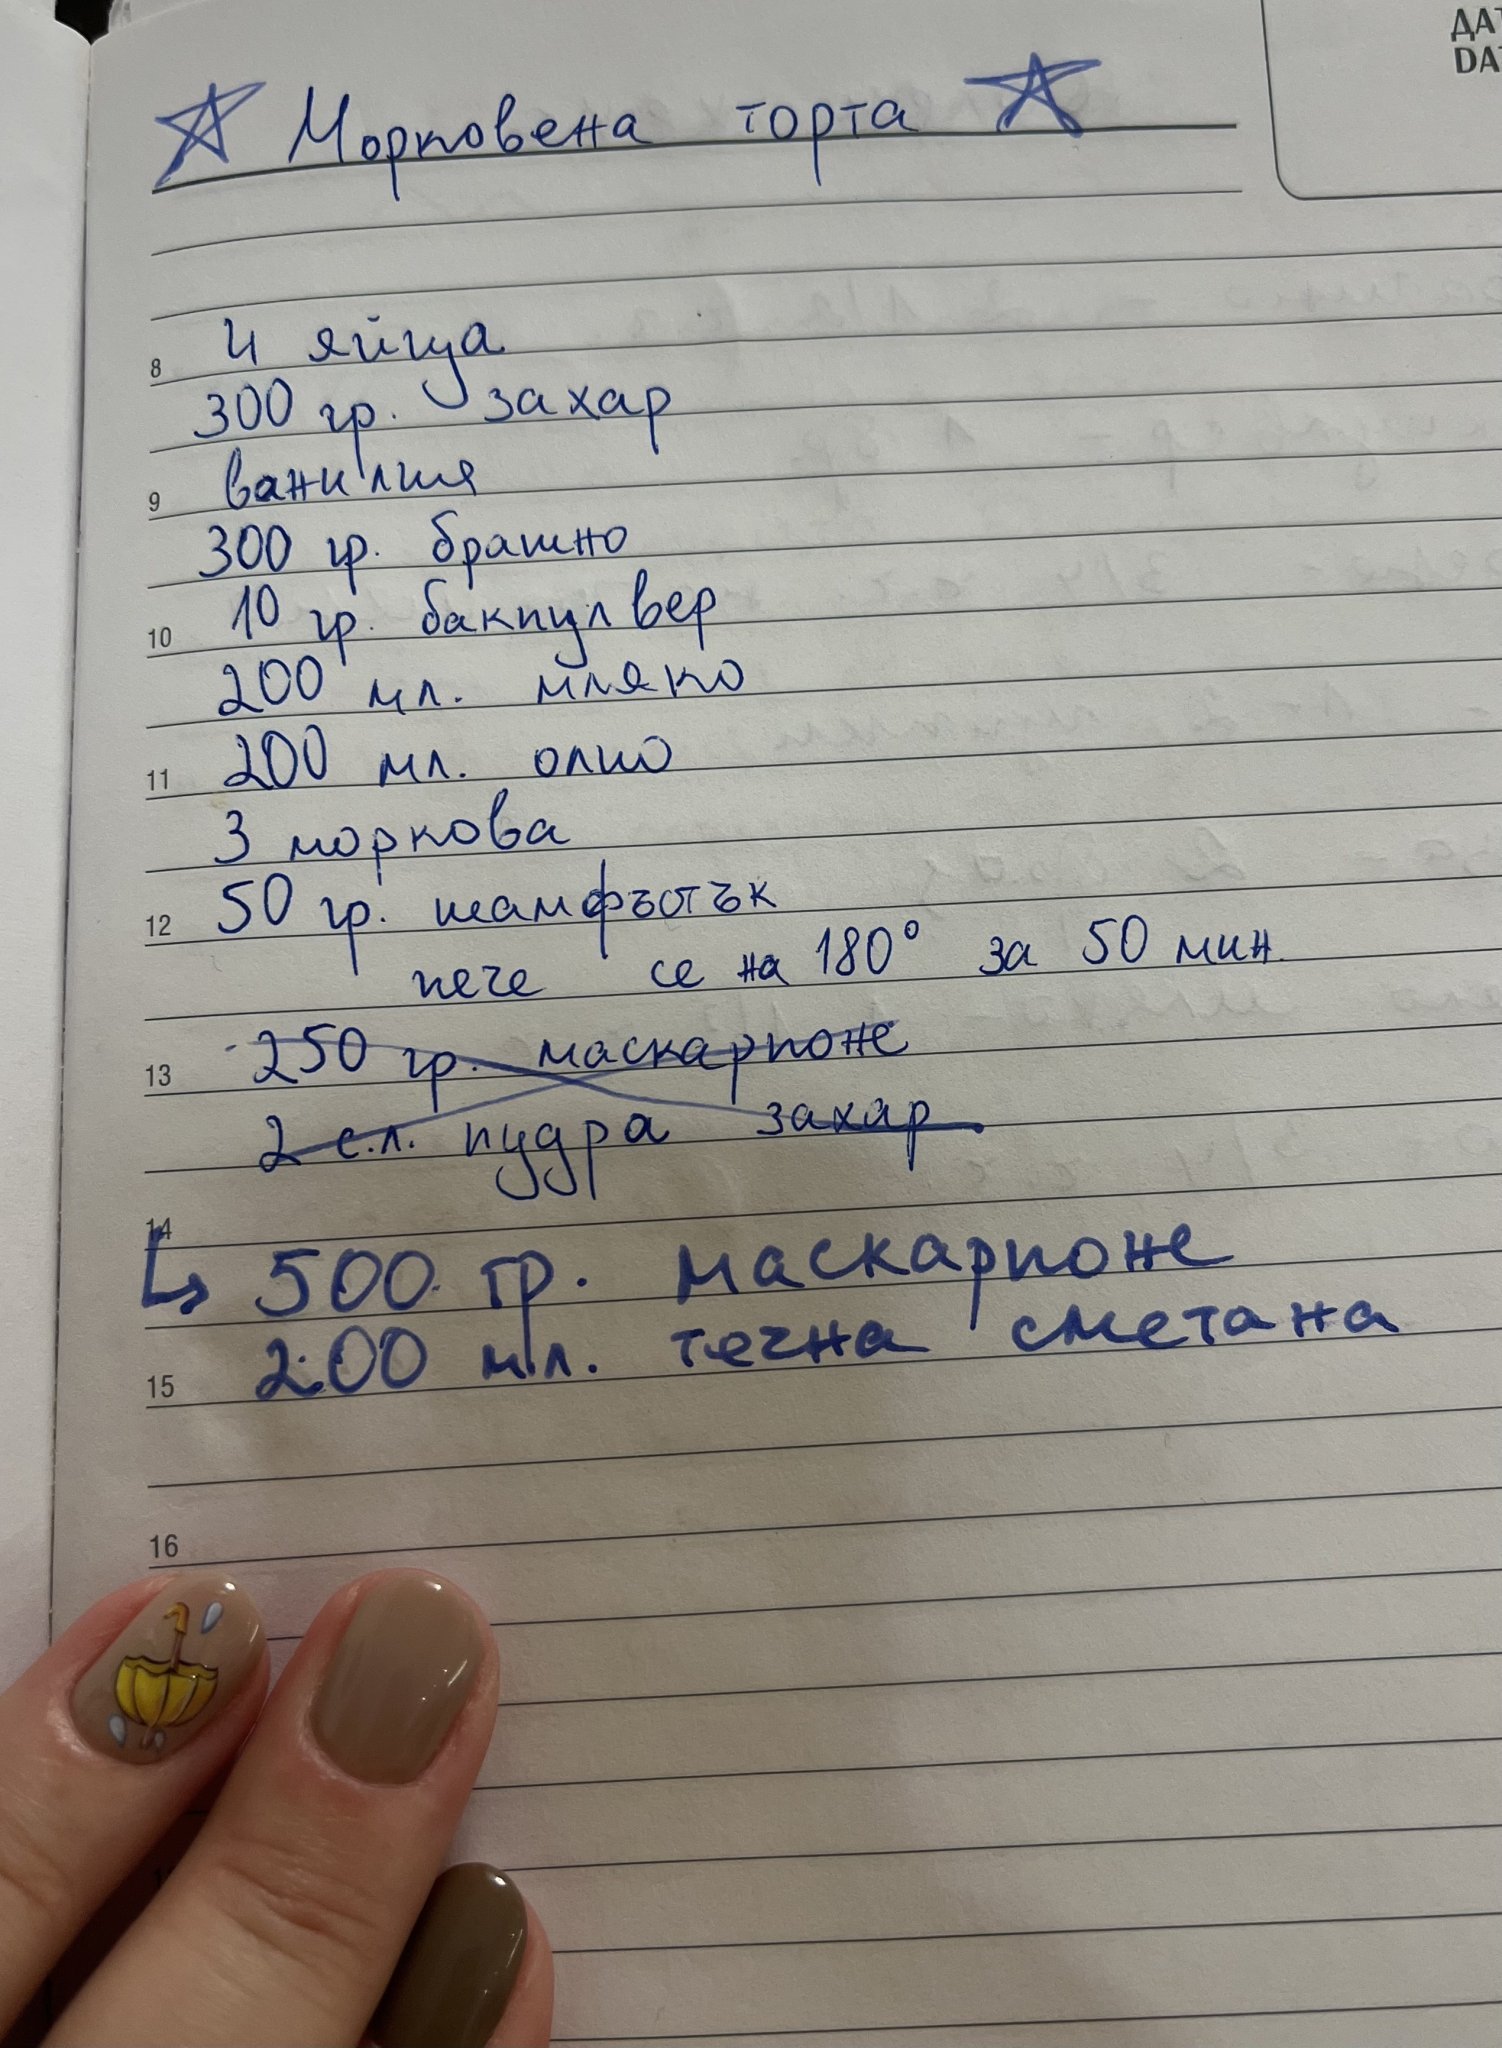 ДАТ
DA
Морковена торта
8 4 яйца
300 гр. захар
9 ванилия
300 гр. брашно
10 10 гр. бакпулвер
200 мл. мляко
11 200 мл. олио
3 моркова
12 50 гр. шамфъстък
пече се на 180° за 50 мин.
13 250 гр. маскарпоне
2 с.л. пудра захар
14
500 гр. маскарпоне
15 200 мл. течна сметана
16